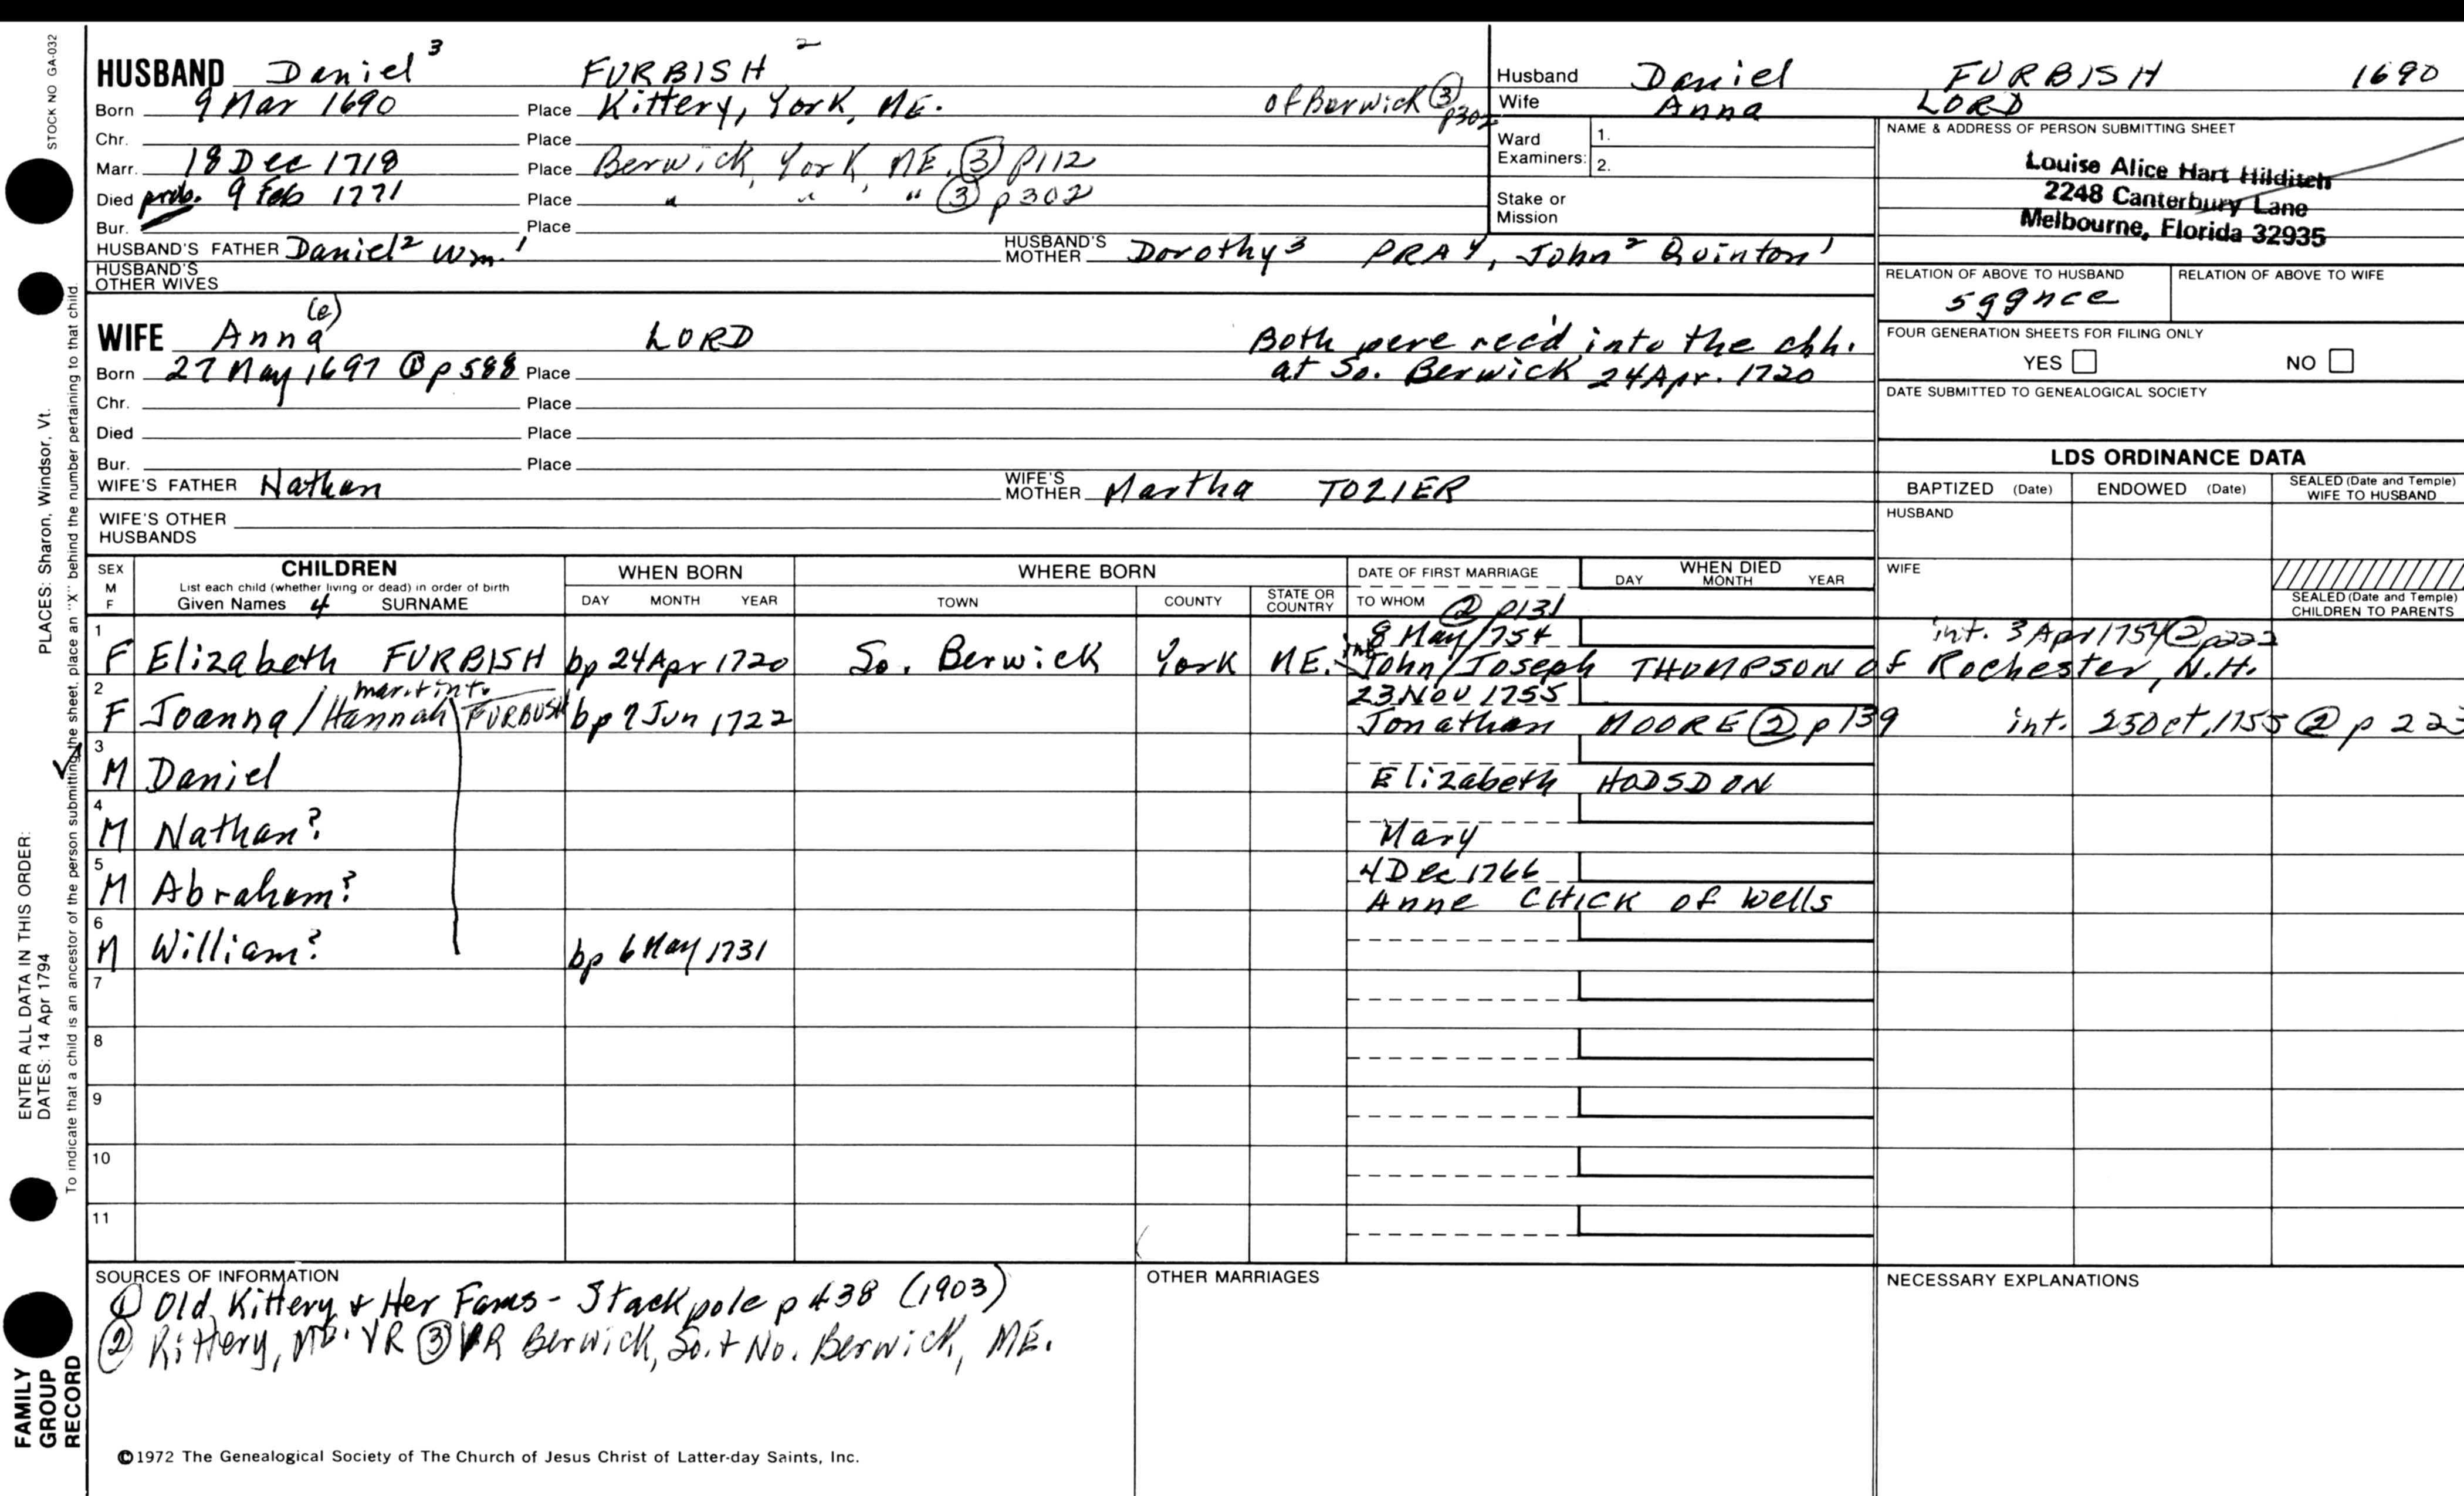 STOCK NO GA-032
HUSBAND Daniel 3 FURBISH 2
Born 9 Mar 1690 Place Kittery, York, ME. of Berwick ③ p302
Chr. Place
Marr. 18 Dec 1718 Place Berwick, York, ME. ③ p112
Died prob. 9 Feb 1771 Place " " " ③ p302
Bur. Place
HUSBAND'S FATHER Daniel 2 Wm. 1 HUSBAND'S MOTHER Dorothy 3 PRAY, John 2 Quinton 1
HUSBAND'S OTHER WIVES
WIFE Anna (e) LORD Both were rec'd into the chh.
Born 27 May 1697 ① p 588 Place at So. Berwick 24 Apr. 1720
Chr. Place
Died Place
Bur. Place
WIFE'S FATHER Nathan WIFE'S MOTHER Martha TOZIER
WIFE'S OTHER HUSBANDS
Husband Daniel FURBISH 1690
Wife Anna LORD
Ward Examiners: 1. 2.
Stake or Mission
NAME & ADDRESS OF PERSON SUBMITTING SHEET
Louise Alice Hart Hilditch
2248 Canterbury Lane
Melbourne, Florida 32935
RELATION OF ABOVE TO HUSBAND RELATION OF ABOVE TO WIFE
5ggnce
FOUR GENERATION SHEETS FOR FILING ONLY
YES NO
DATE SUBMITTED TO GENEALOGICAL SOCIETY
LDS ORDINANCE DATA
BAPTIZED (Date) ENDOWED (Date) SEALED (Date and Temple) WIFE TO HUSBAND
HUSBAND
WIFE
SEALED (Date and Temple) CHILDREN TO PARENTS
SEX M F CHILDREN List each child (whether living or dead) in order of birth Given Names 4 SURNAME
WHEN BORN DAY MONTH YEAR
WHERE BORN TOWN COUNTY STATE OR COUNTRY
DATE OF FIRST MARRIAGE TO WHOM ② p131
WHEN DIED DAY MONTH YEAR
1 8 May 1754 int. 3 Apr 1754 ② p222
F Elizabeth FURBISH bp 24 Apr 1720 So. Berwick York ME. John/Joseph THOMPSON of Rochester, N.H.
2 mar. + int. 23 Nov 1755
F Joanna / Hannah FURBUSH bp 7 Jun 1722 Jonathan MOORE ② p139 int. 25 Oct. 1755 ② p 223
3
M Daniel Elizabeth HODSDON
4
M Nathan? Mary
5 4 Dec 1766
M Abraham? Anne CHICK of Wells
6
M William? bp 6 May 1731
7
8
9
10
11
SOURCES OF INFORMATION
① Old Kittery & Her Fams - Stackpole p 438 (1903)
② Kittery, ME. VR ③ VR Berwick, So. + No. Berwick, ME.
OTHER MARRIAGES
NECESSARY EXPLANATIONS
©1972 The Genealogical Society of The Church of Jesus Christ of Latter-day Saints, Inc.
PLACES: Sharon, Windsor, Vt.
ENTER ALL DATA IN THIS ORDER:
DATES: 14 Apr 1794
To indicate that a child is an ancestor of the person submitting the sheet, place an "X" behind the number pertaining to that child.
FAMILY
GROUP
RECORD